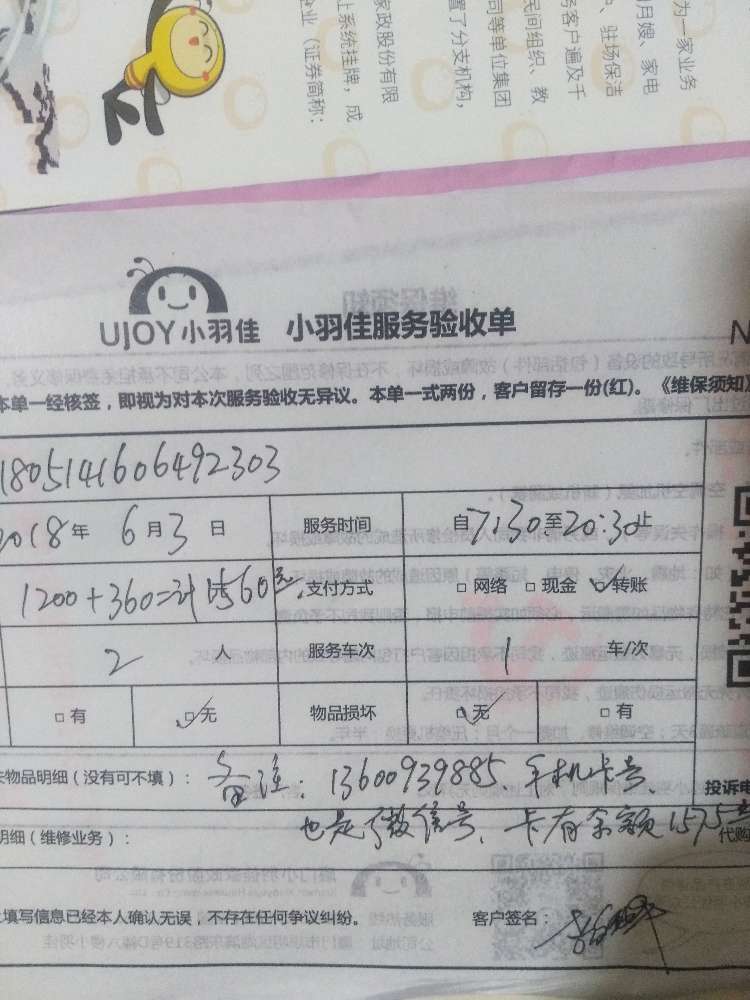 为一家业务
月嫂、家电
、驻场保洁
务客户遍及千
民间组织、教
司等单位集团
置了分支机构,
家政股份有限
让系统挂牌,成
企业(证券简称:
UJOY小羽佳 小羽佳服务验收单
本单一经核签,即视为对本次服务验收无异议。本单一式两份,客户留存一份(红)。《维保须知》
1805141606492303
2018年 6月3日 服务时间 自7:30至20:30止
1200+360=计1560元 支付方式 □网络 □现金 ☑转账
2人 服务车次 1 车/次
□有 ☑无 物品损坏 ☑无 □有
物品明细(没有可不填): 备注:13600939885、手机卡号、
投诉电
也是微信号、卡存余额1575
代购
明细(维修业务):
填写信息已经本人确认无误,不存在任何争议纠纷。 客户签名: